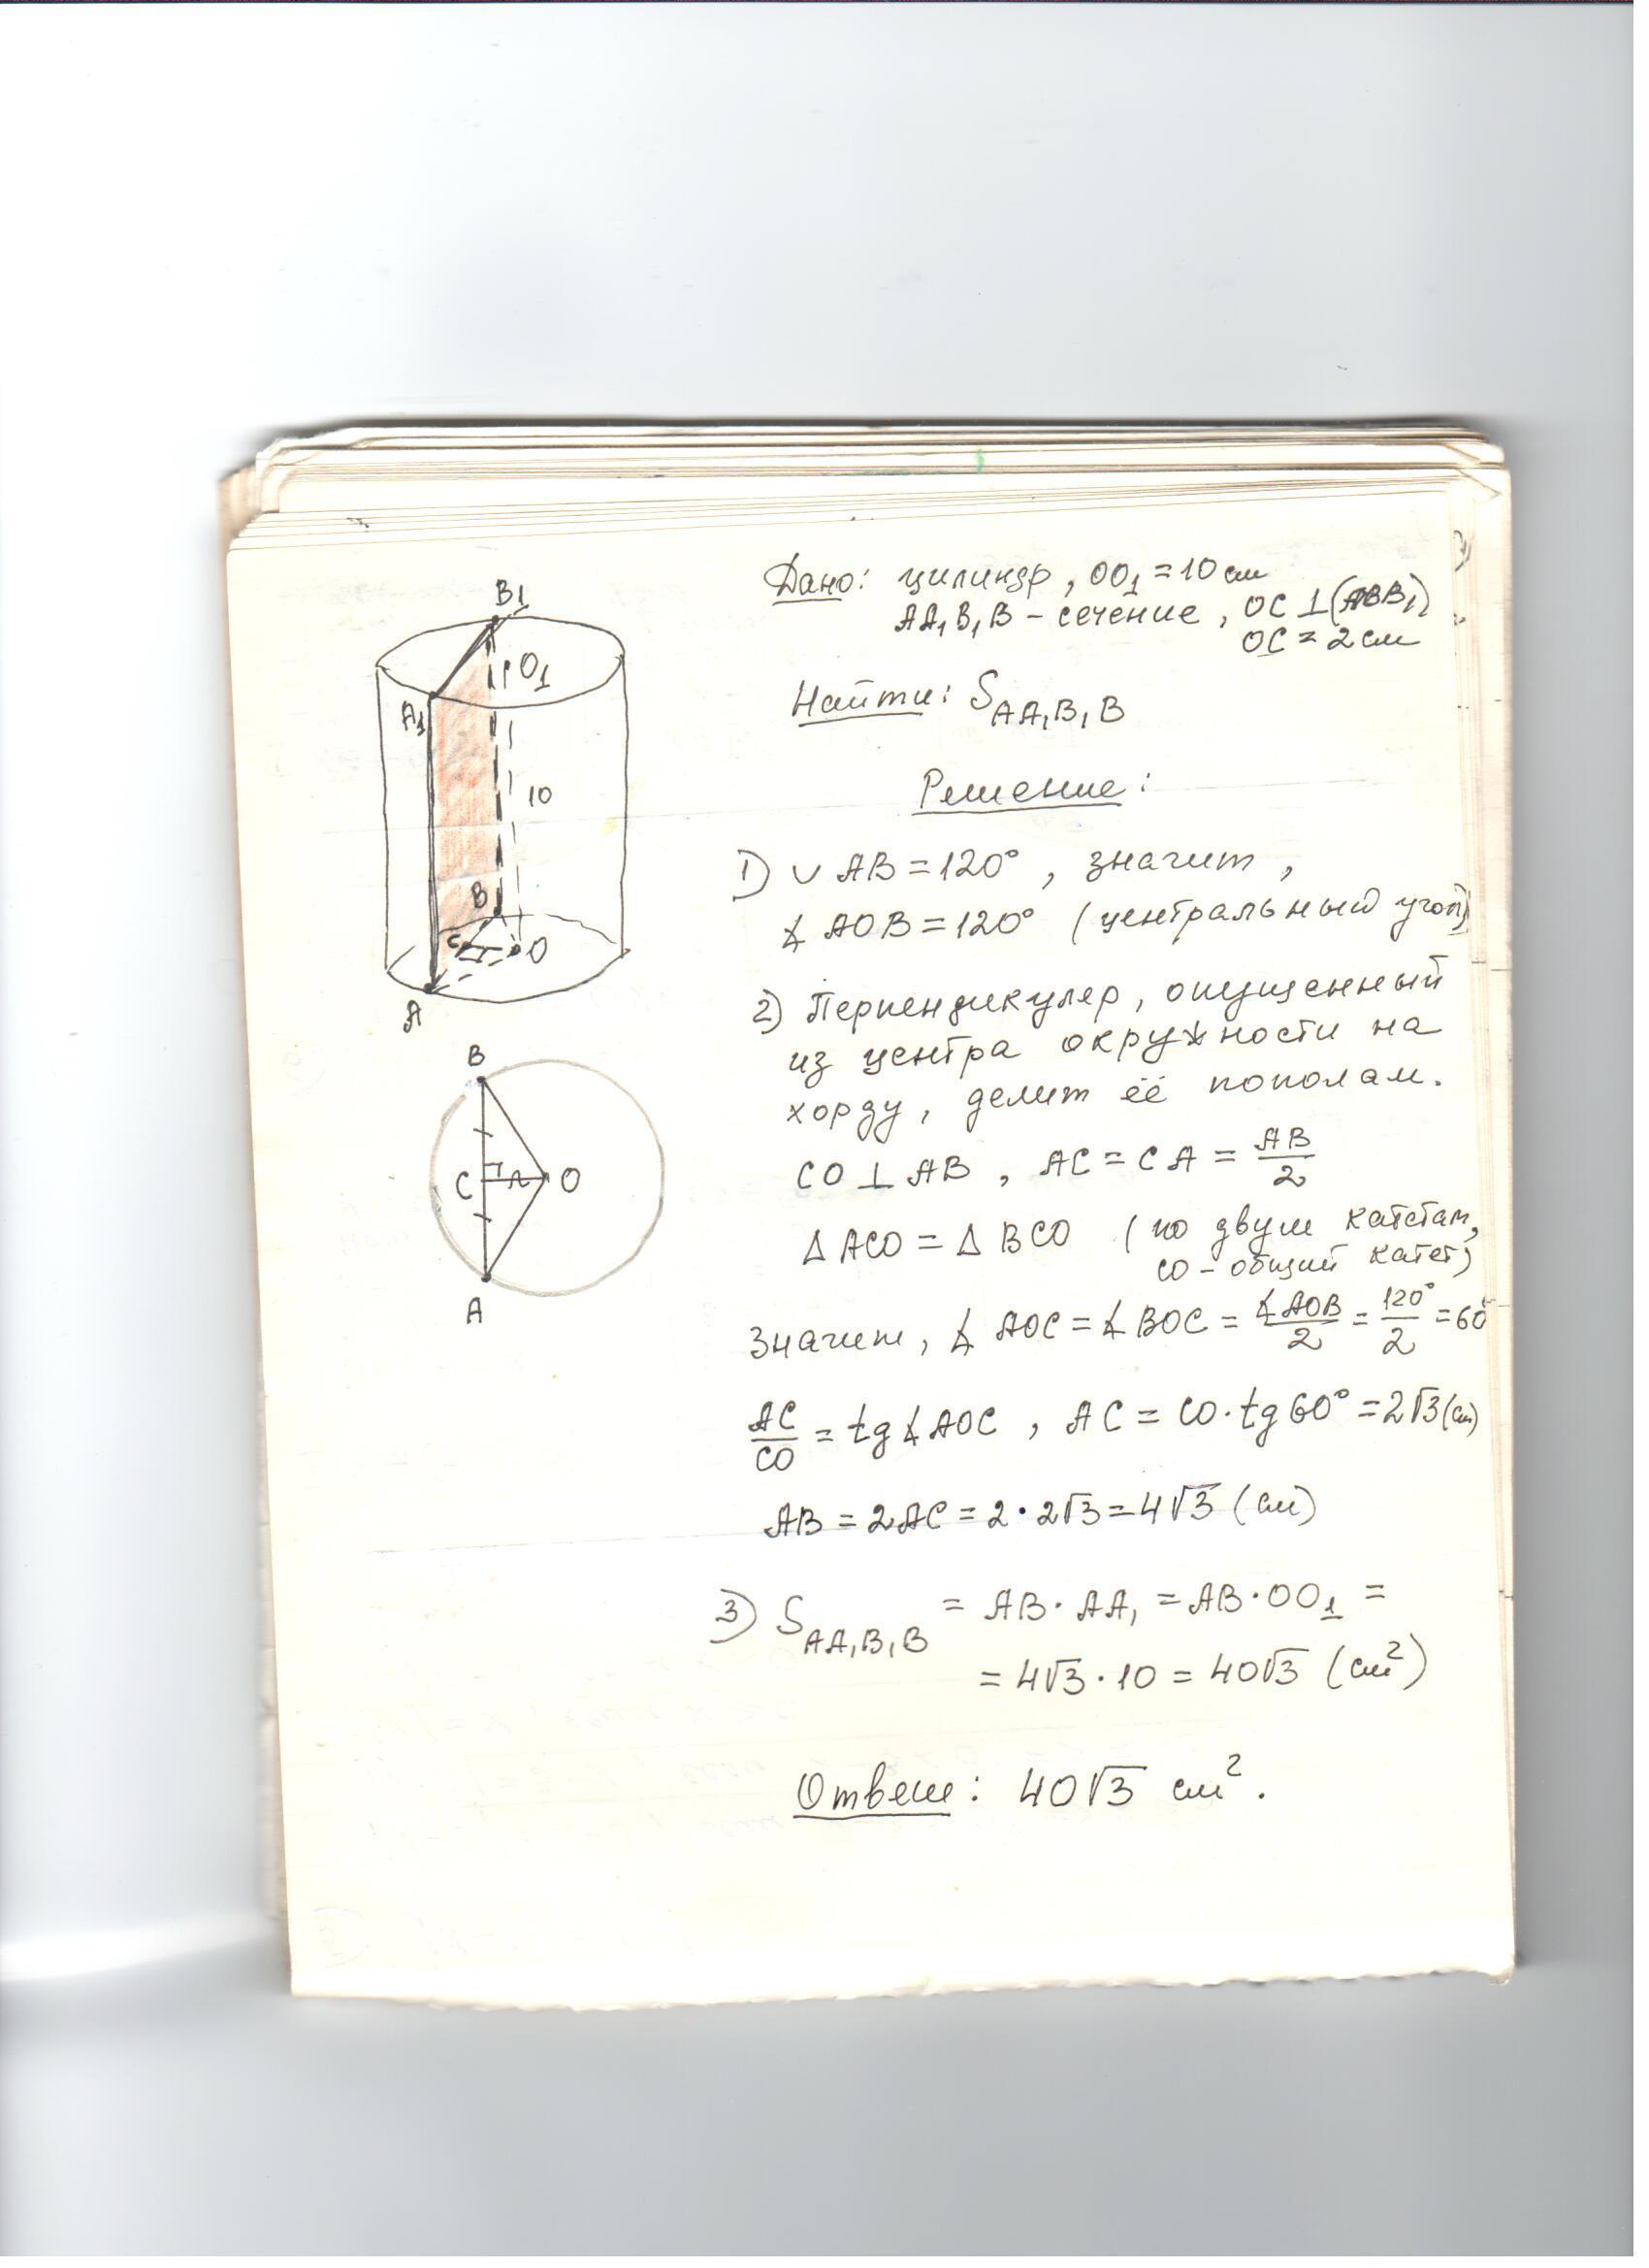 B₁
O₁
A₁
10
B
C
O
A
B
C 2 O
A
Дано: цилиндр, OO₁ = 10 см
AA₁B₁B - сечение, OC ⊥ (ABB₁)
OC = 2 см
Найти: S AA₁B₁B
Решение:
1) ∪ AB = 120°, значит,
∡ AOB = 120° (центральный угол)
2) Перпендикуляр, опущенный
из центра окружности на
хорду, делит её пополам.
CO ⊥ AB, AC = CA = AB/2
Δ ACO = Δ BCO (по двум катетам,
CO - общий катет)
Значит, ∡ AOC = ∡ BOC = ∡AOB/2 = 120°/2 = 60°
AC/CO = tg ∡ AOC, AC = CO · tg 60° = 2√3 (см)
AB = 2AC = 2 · 2√3 = 4√3 (см)
3) S AA₁B₁B = AB · AA₁ = AB · OO₁ =
= 4√3 · 10 = 40√3 (см²)
Ответ: 40√3 см².